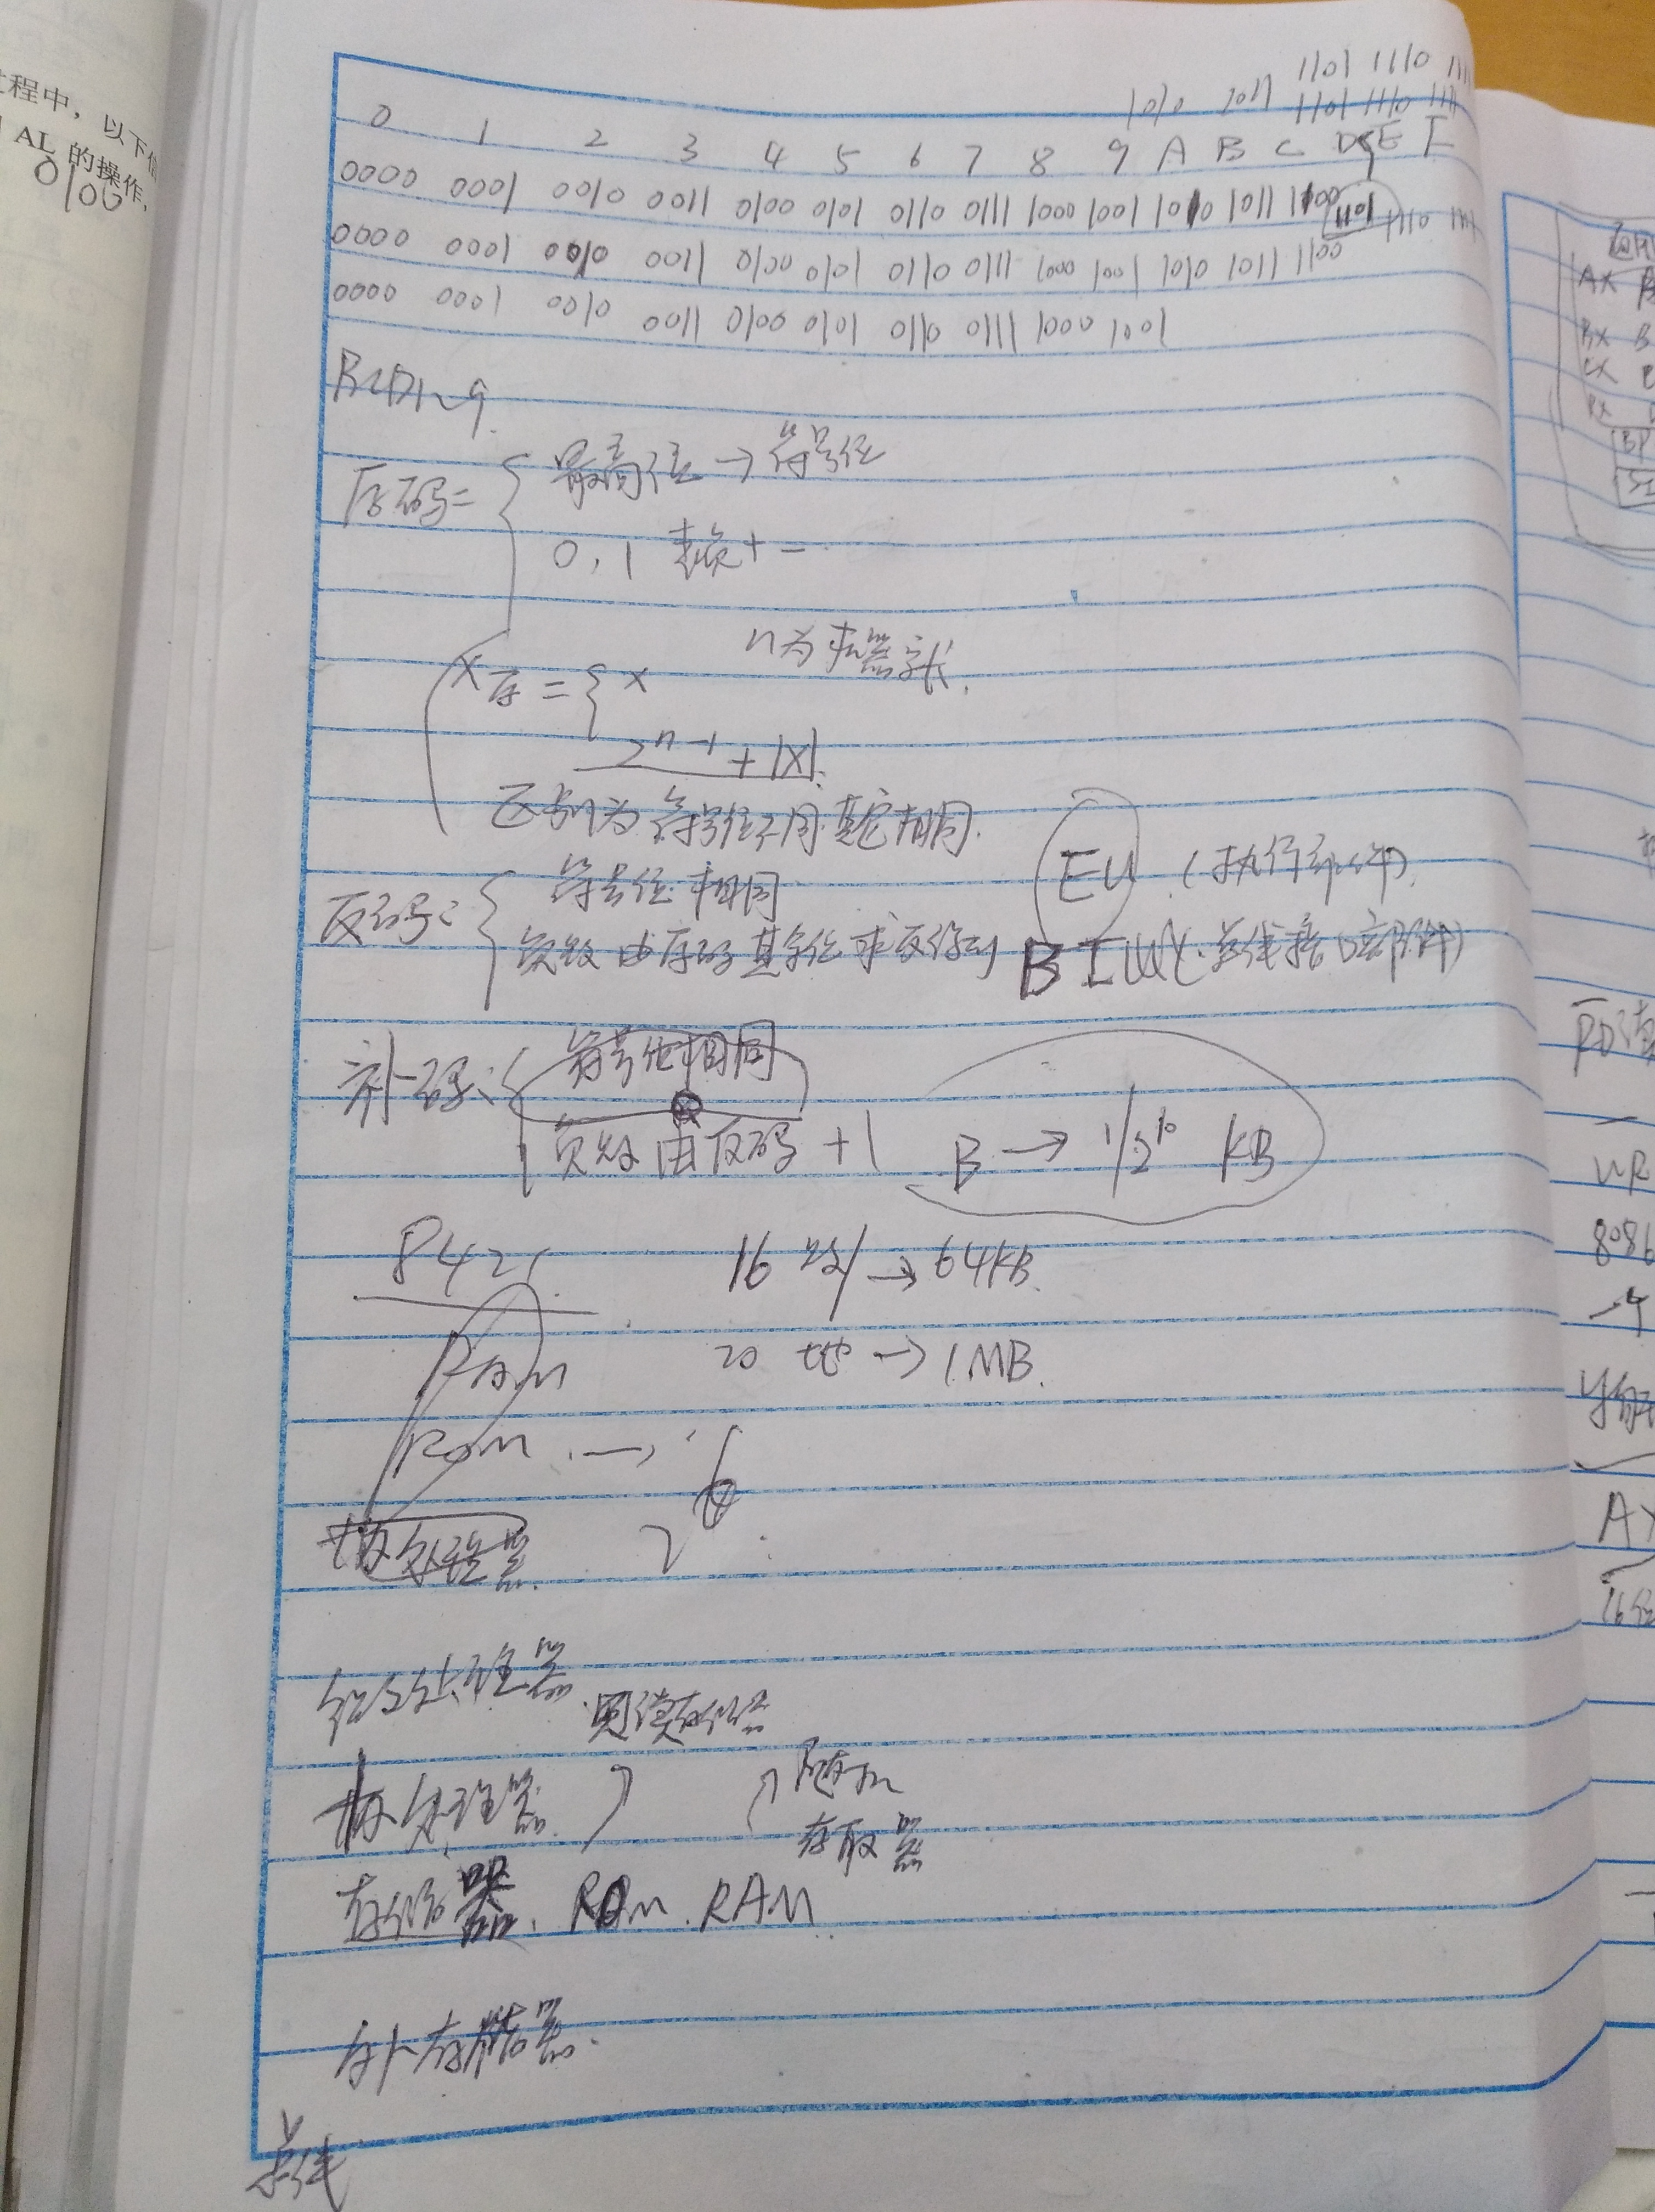 程中，以下
AL 的操作，
0100
1101 1110
1010 1011 1101 1110 111
0 1 2 3 4 5 6 7 8 9 A B C D E F
0000 0001 0010 0011 0100 0101 0110 0111 1000 1001 1010 1011 1100 1101 1110 1111
0000 0001 0010 0011 0100 0101 0110 0111 1000 1001 1010 1011 1100
0000 0001 0010 0011 0100 0101 0110 0111 1000 1001
原码= { 最高位 → 符号位
0, 1 表示 + -
n为机器字长.
X原 = { X
2ⁿ⁻¹ + |X|
区别为 符号位不同 真值相同.
EU (执行部件)
反码: { 符号位相同
负数 由原码 其余位 求反得到
BIU (总线接口部件)
补码: { 符号位相同
负数 由反码 +1
B → 1/2¹⁰ KB
8421
16 → 64KB.
20 地 → 1MB.
RAM
ROM →
微处理器.
处理器
只读存储器
微处理器
随机
存取器
存储器. ROM. RAM
外存储器.
总线
AX
BX
CX
BP
RD
WR
8086
一个
AX
16位